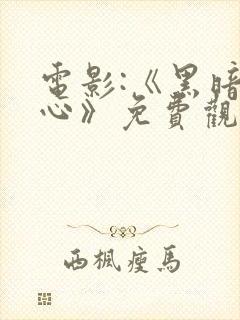 電影:《黑暗
心》免費觀
西楓瘦馬